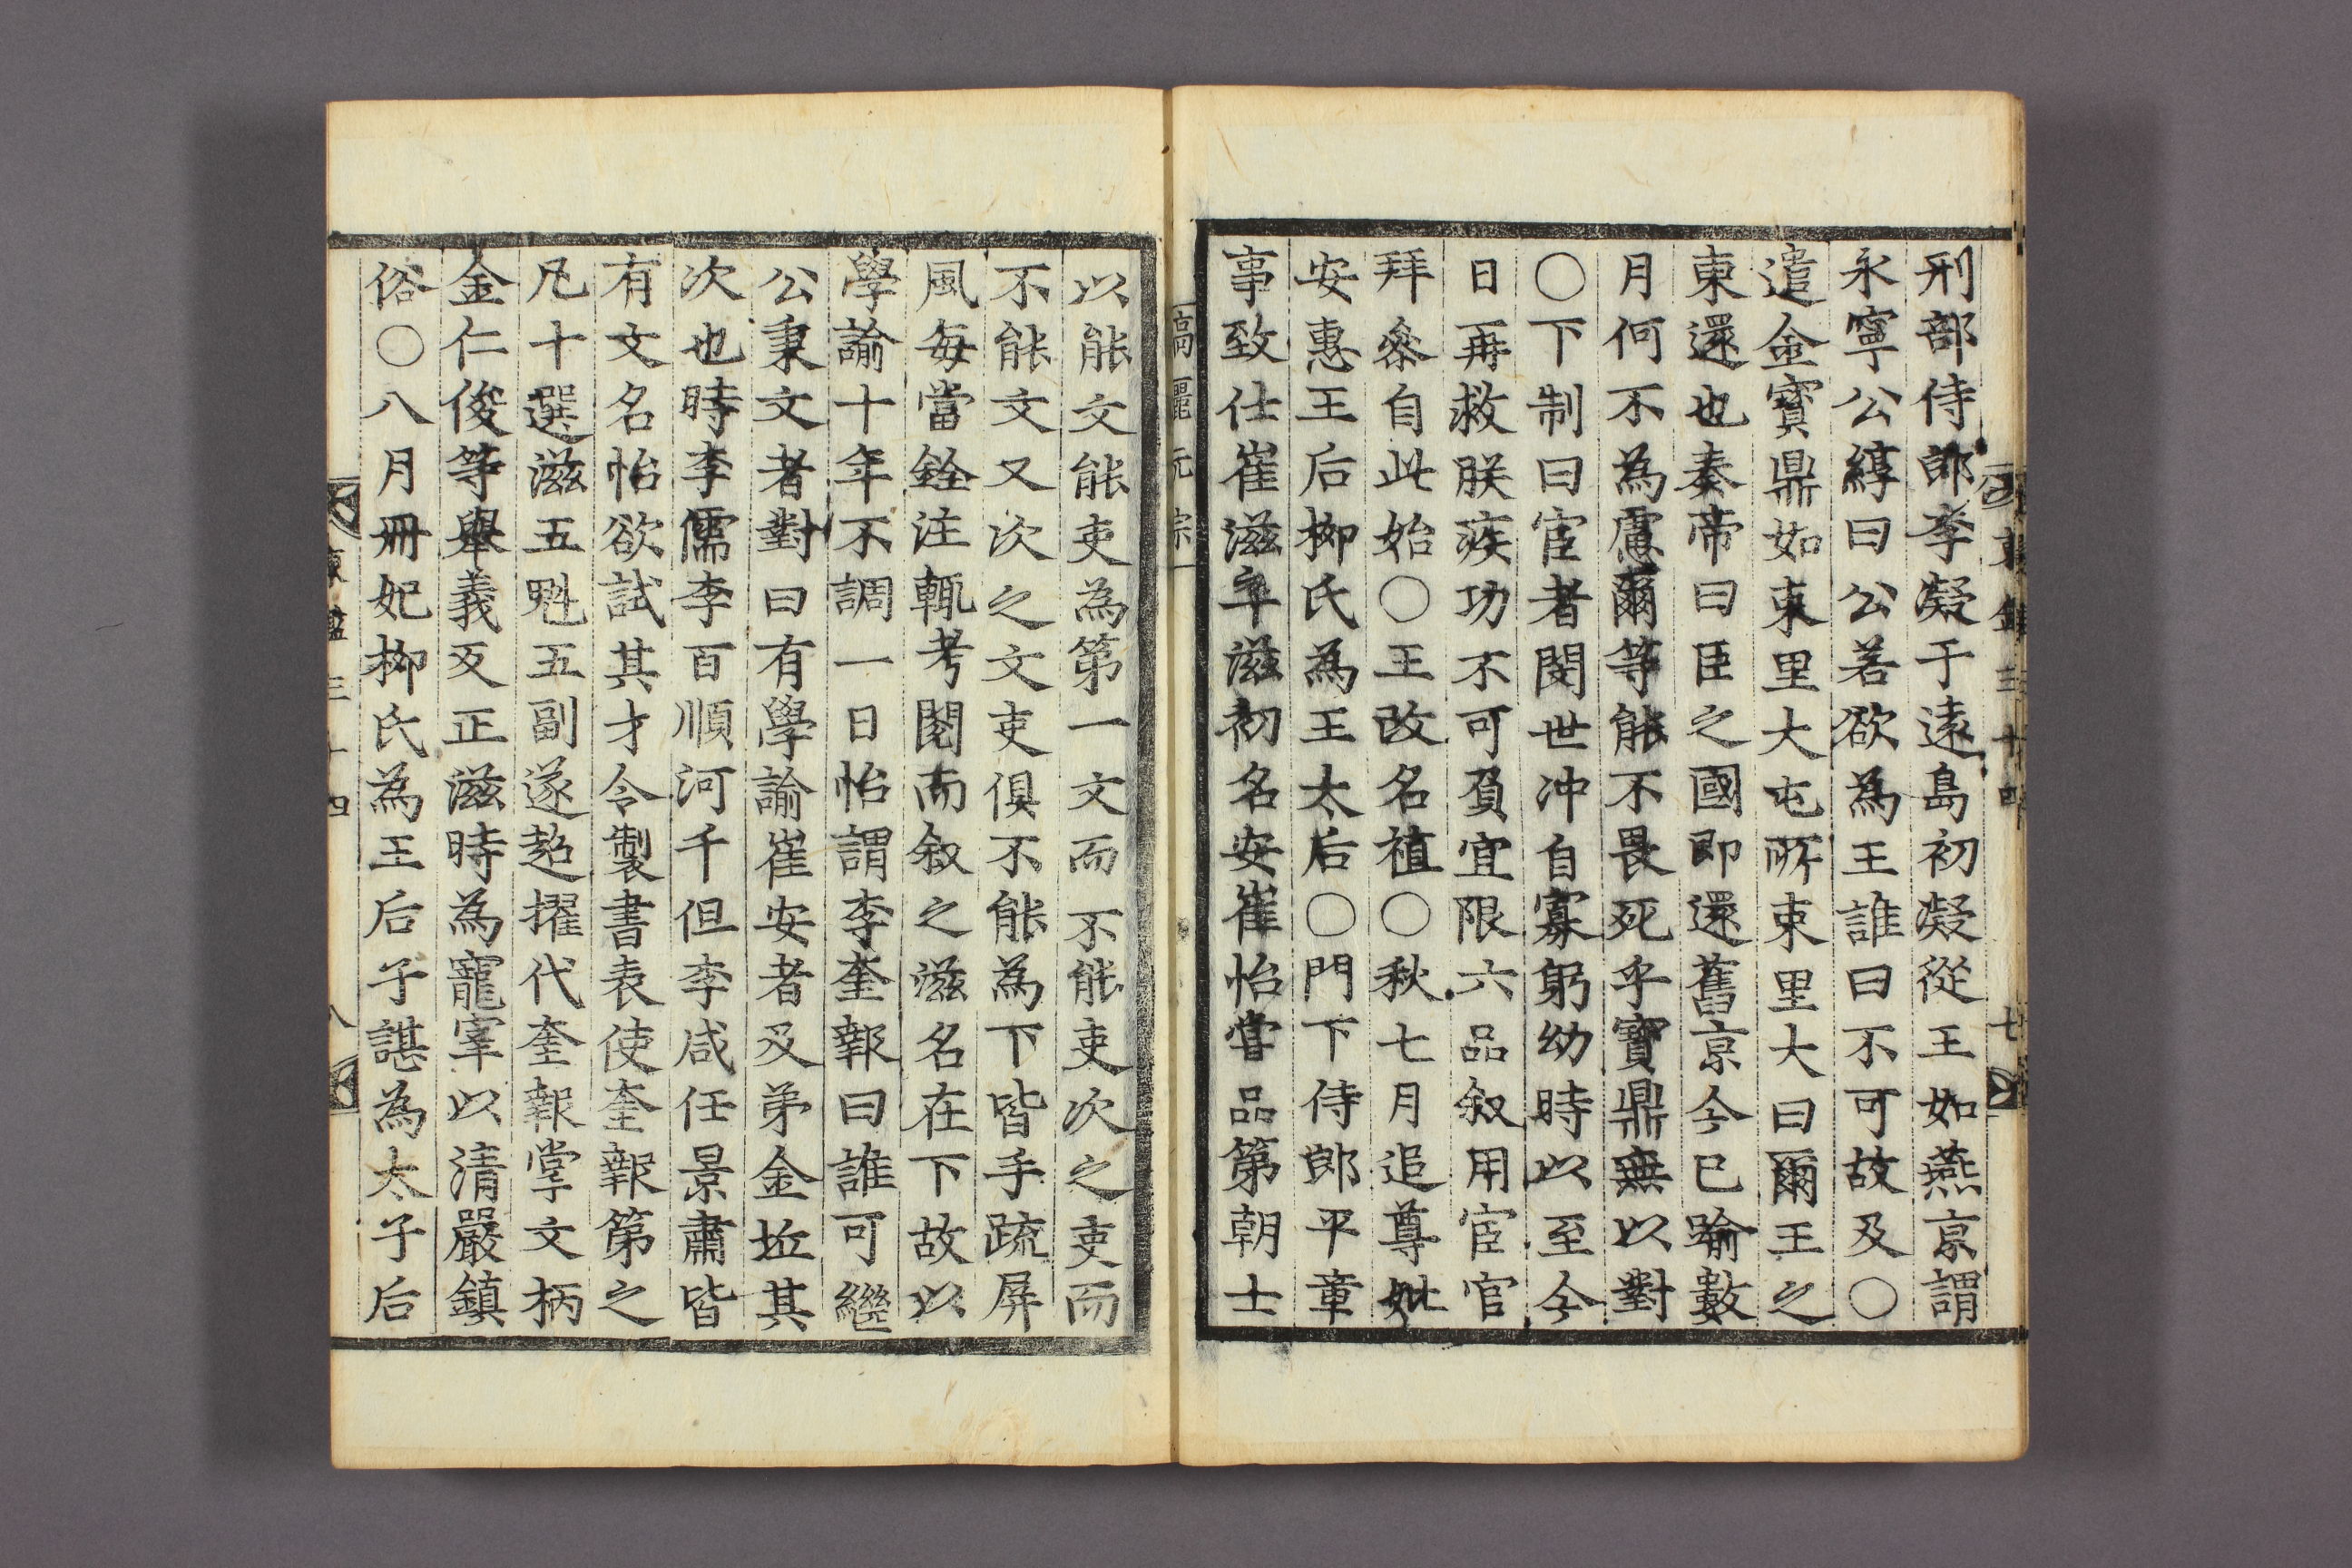 東鑑三十四
七
刑部侍郎李凝于遠島初凝從王如燕京謂
永寧公綧曰公若欲為王誰曰不可故及○
遣金寶鼎如東里大屯所東里大曰爾王之
東還也奏帝曰臣之國即還舊京今已踰數
月何不為慮爾等能不畏死乎寶鼎無以對
○下制曰宦者閔世冲自寡躬幼時以至今
日再救朕疾功不可負宜限六品叙用宦官
拜叅自此始○王改名禃○秋七月追尊妣
安惠王后柳氏為王太后○門下侍郎平章
事致仕崔滋卒滋初名安崔怡嘗品第朝士
高麗元宗一
以能文能吏為第一文而不能吏次之吏而
不能文又次之文吏俱不能為下皆手疏屏
風每當銓注輒考閱而叙之滋名在下故以
學諭十年不調一日怡謂李奎報曰誰可繼
公秉文者對曰有學諭崔安者及弟金坵其
次也時李需李百順河千但李咸任景肅皆
有文名怡欲試其才令製書表使奎報第之
凡十選滋五魁五副遂超擢代奎報掌文柄
金仁俊等舉義反正滋時為寵宰以清嚴鎮
俗○八月冊妃柳氏為王后子諶為太子后
東鑑三十四
八